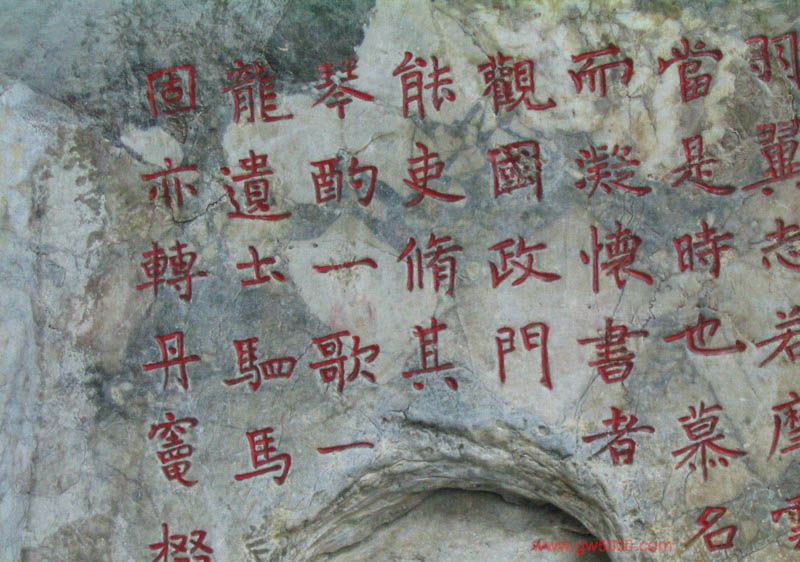 羽翼志若摩雲
當是時也慕名
而凝懷書者
觀國政門
能吏脩其
琴酌一歌一
龍遺士駟馬
固亦轉丹竈
www.gw5000.com